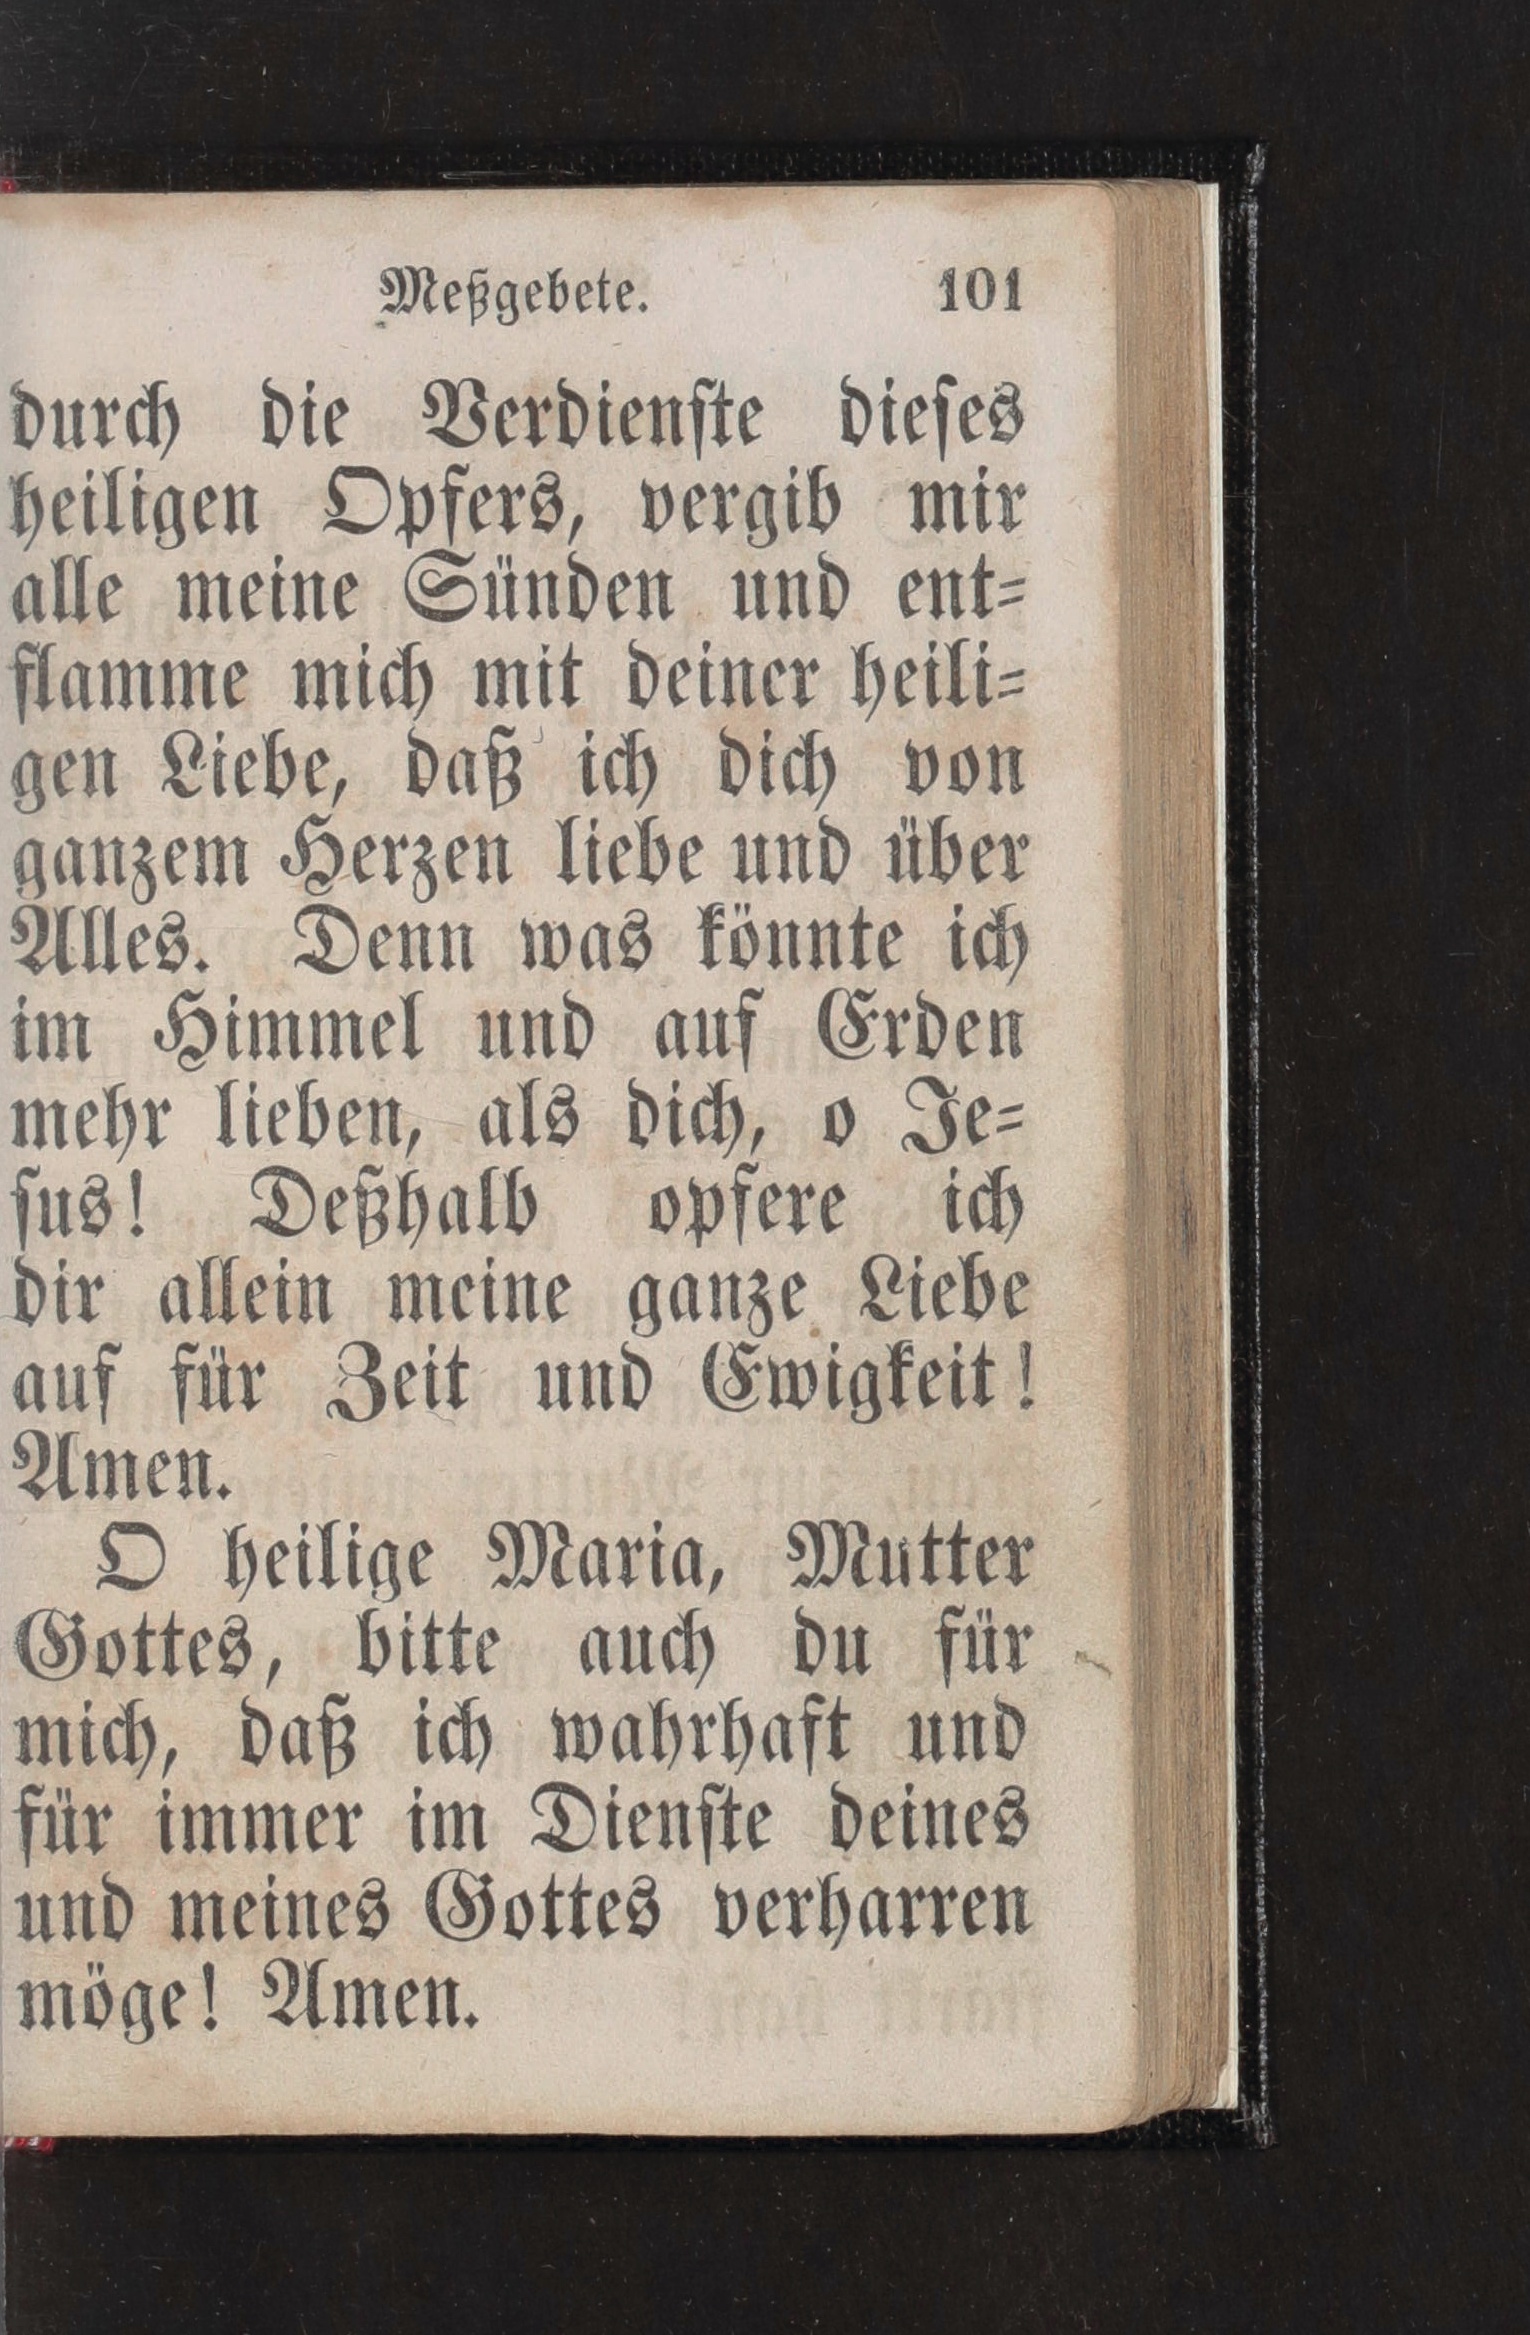 Meßgebete. 101
durch die Verdienſte dieſes
heiligen Opfers, vergib mir
alle meine Sünden und ent=
flamme mich mit deiner heili=
gen Liebe, daß ich dich von
ganzem Herzen liebe und über
Alles. Denn was könnte ich
im Himmel und auf Erden
mehr lieben, als dich, o Je=
ſus! Deßhalb opfere ich
dir allein meine ganze Liebe
auf für Zeit und Ewigkeit!
Amen.
O heilige Maria, Mutter
Gottes, bitte auch du für
mich, daß ich wahrhaft und
für immer im Dienſte deines
und meines Gottes verharren
möge! Amen.